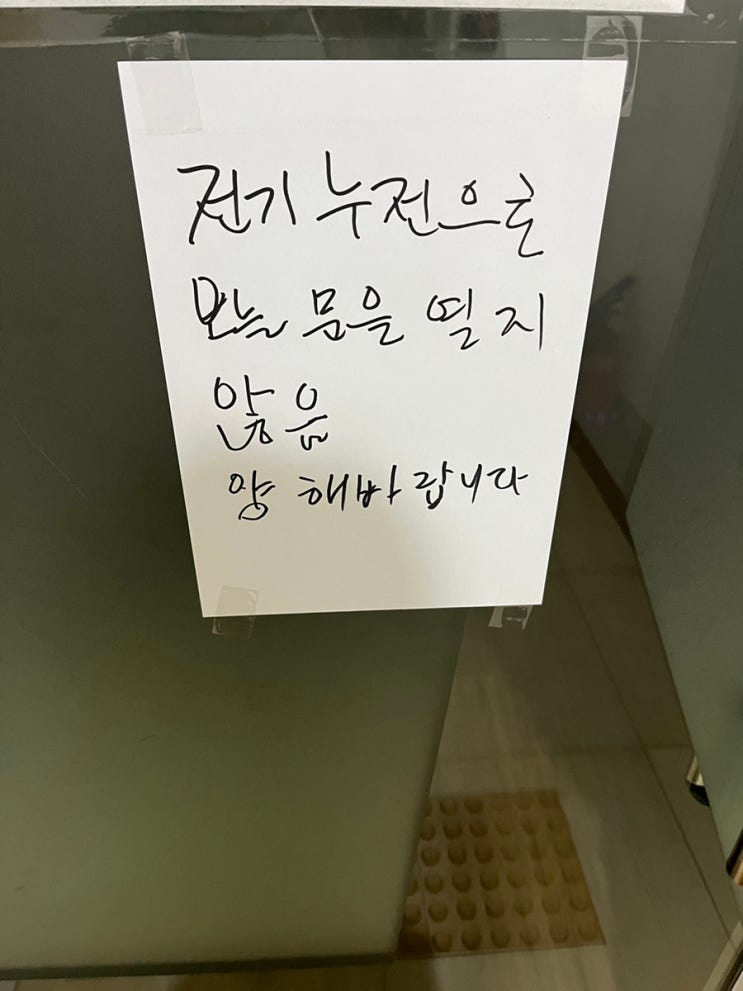 전기 누전으로
오늘 문을 열지
않음
양해바랍니다